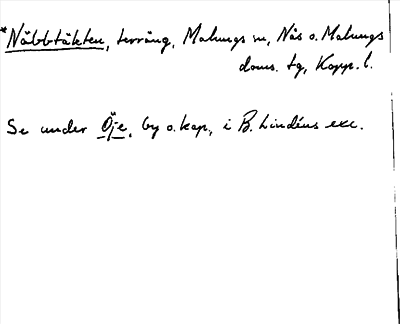 *Näbbtäkten, terräng, Malungs sn, Nås o. Malungs
doms. tg, Kopp. l.
Se under Öje, by o. kap., i B. Lindéns exc.